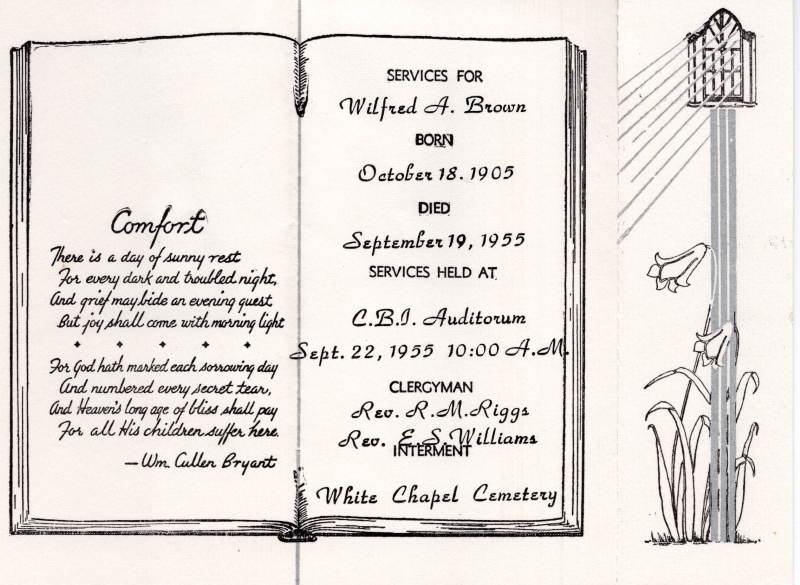 Comfort
There is a day of sunny rest
For every dark and troubled night,
And grief may bide an evening guest
But joy shall come with morning light
For God hath marked each sorrowing day
And numbered every secret tear,
And Heaven's long age of bliss shall pay
For all His children suffer here.
—Wm. Cullen Bryant
SERVICES FOR
Wilfred A. Brown
BORN
October 18. 1905
DIED
September 19, 1955
SERVICES HELD AT
C.B.I. Auditorum
Sept. 22, 1955 10:00 A.M.
CLERGYMAN
Rev. R.M.Riggs
Rev. E.S.Williams
INTERMENT
White Chapel Cemetery